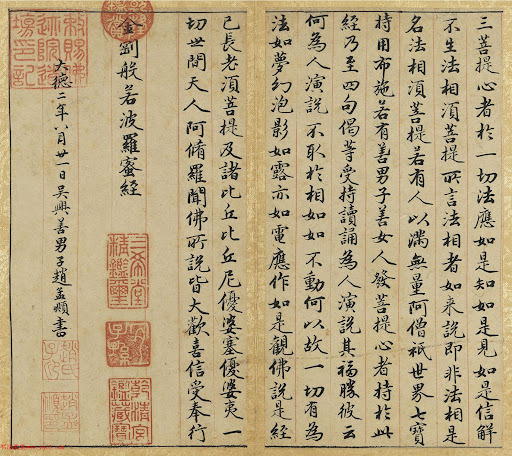 三菩提心者於一切法應如是知如是見如是信解
不生法相須菩提所言法相者如来說即非法相是
名法相須菩提若有人以滿無量阿僧祇世界七寶
持用布施若有善男子善女人發菩提心者持於此
經乃至四句偈等受持讀誦為人演說其福勝彼云
何為人演說不取於相如如不動何以故一切有為
法如夢幻泡影如露亦如電應作如是觀佛說是經
已長老須菩提及諸比丘比丘尼優婆塞優婆夷一
切世間天人阿脩羅聞佛所說皆大歡喜信受奉行
金剛般若波羅蜜經
三希堂
精鑑璽
宜子孫
乾清宮
鑑藏寶
大德二年八月廿一日吳興善男子趙孟頫書
趙氏子昂